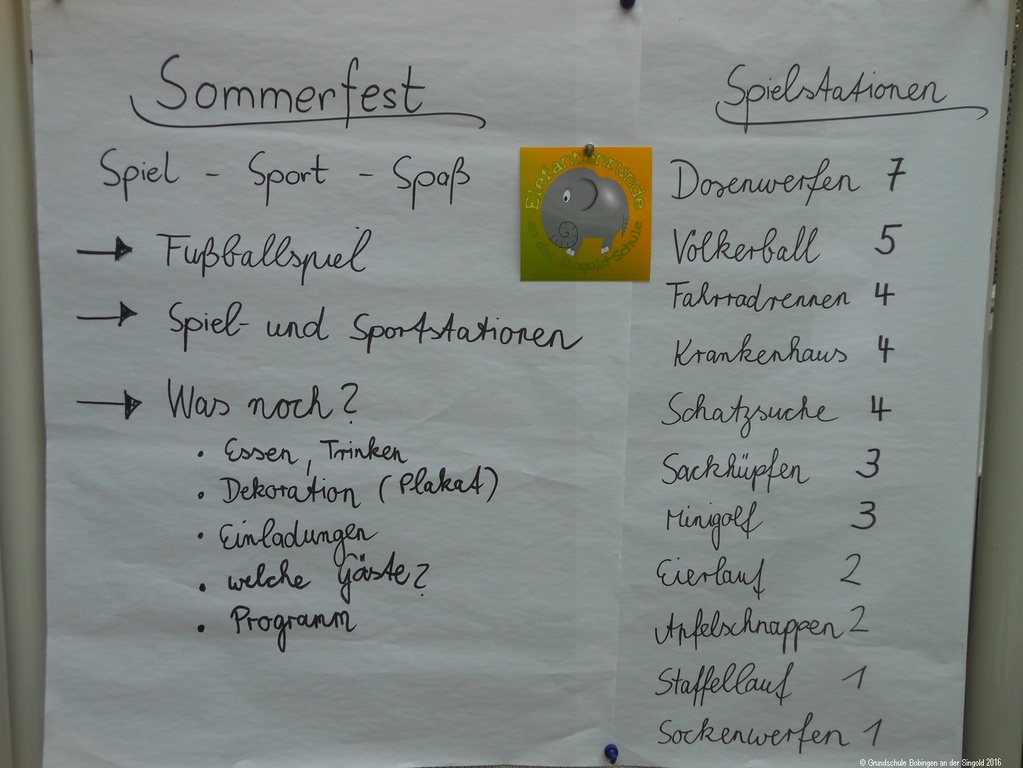 Sommerfest
Spiel - Sport - Spaß
→ Fußballspiel
→ Spiel- und Sportstationen
→ Was noch?
• Essen, Trinken
• Dekoration (Plakat)
• Einladungen
• welche Gäste?
• Programm
Elefantenrunde
an der Singold-Schule
Spielstationen
Dosenwerfen 7
Völkerball 5
Fahrradrennen 4
Krankenhaus 4
Schatzsuche 4
Sackhüpfen 3
Minigolf 3
Eierlauf 2
Apfelschnappen 2
Staffellauf 1
Sockenwerfen 1
© Grundschule Bobingen an der Singold 2016